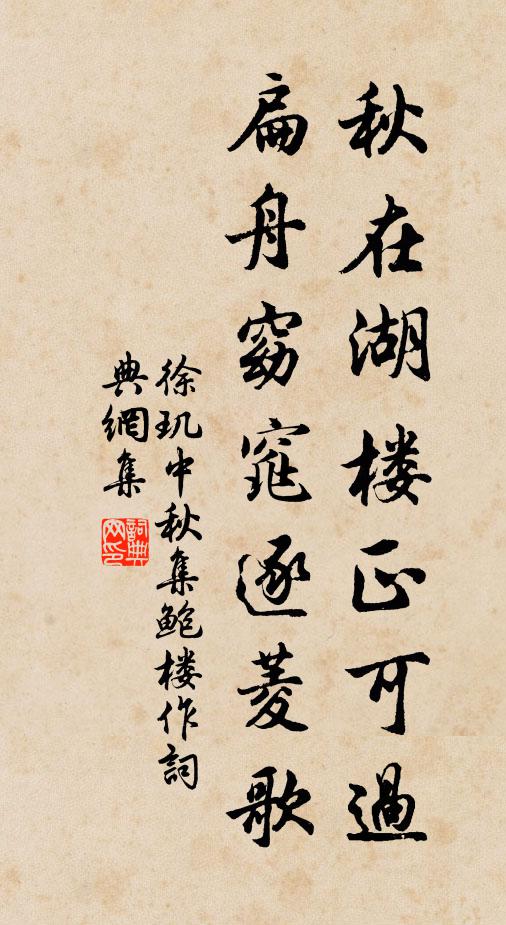 秋在湖楼正可過
扁舟窈窕逐菱歌
徐玑中秋集鲍楼作詞
典網集
詞典网印